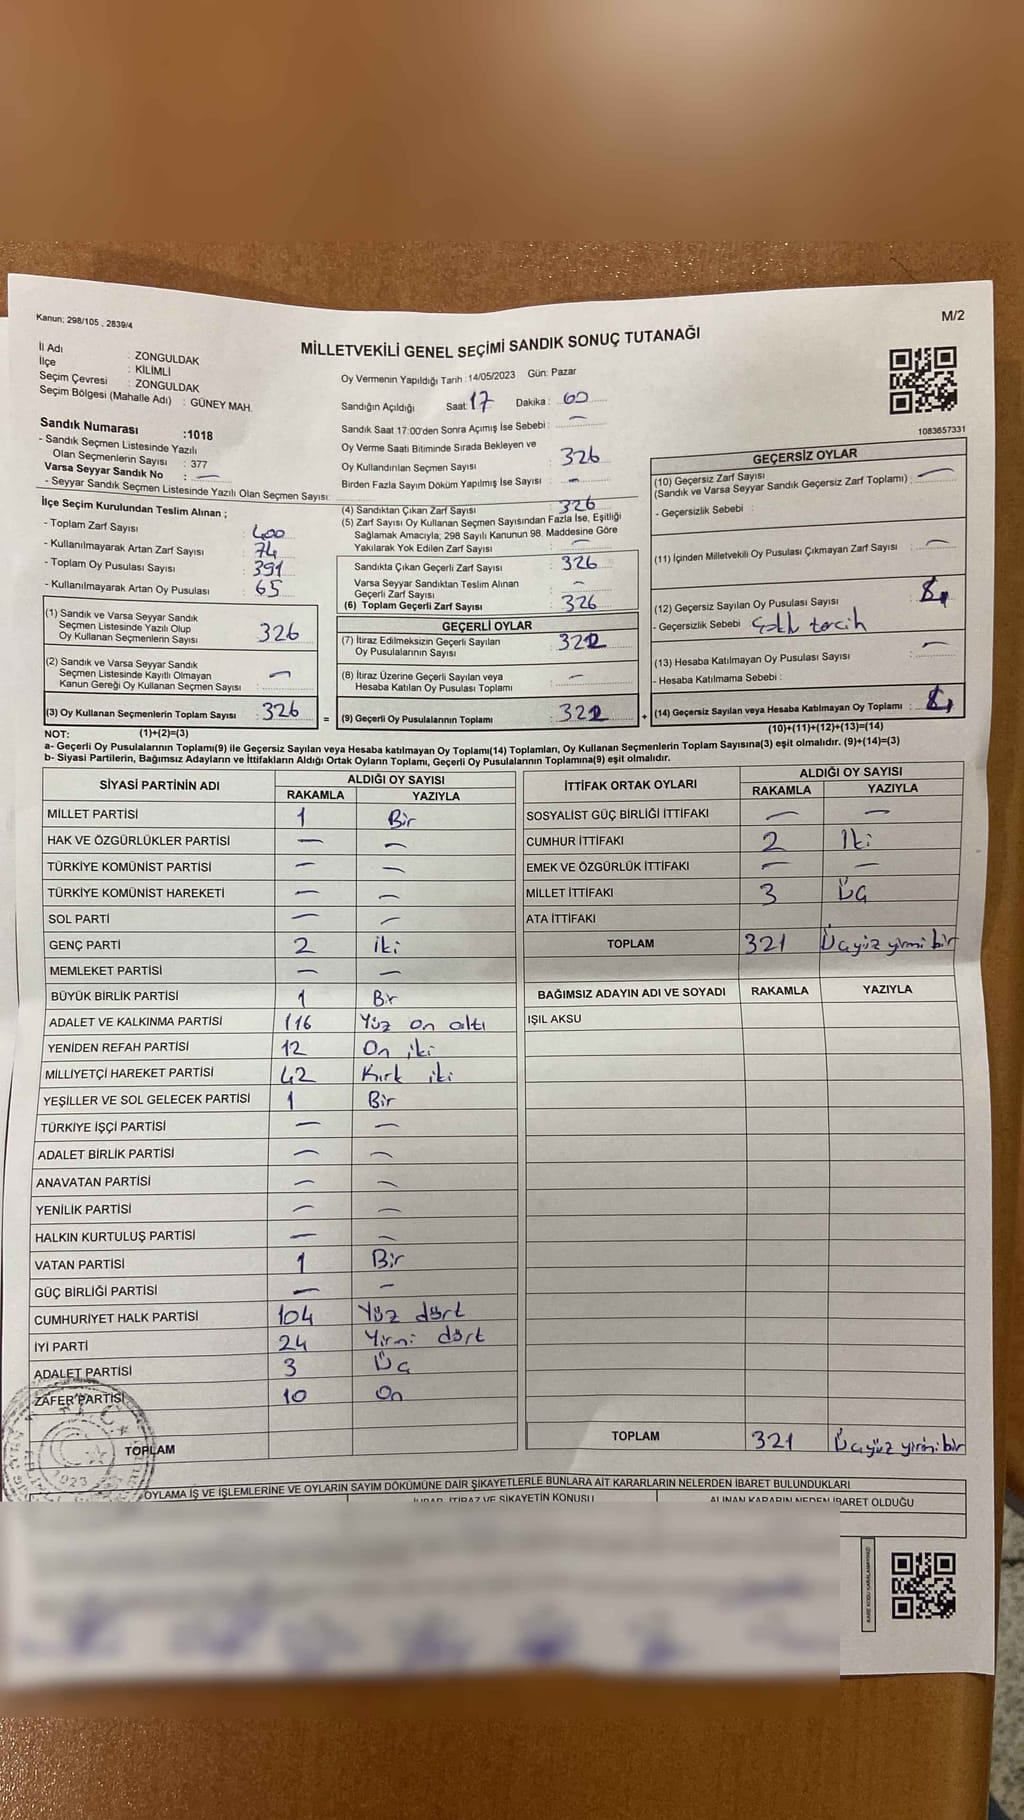 Kanun: 298/105 , 2839/4
M/2
MİLLETVEKİLİ GENEL SEÇİMİ SANDIK SONUÇ TUTANAĞI
İl Adı : ZONGULDAK
İlçe : KİLİMLİ
Seçim Çevresi : ZONGULDAK
Seçim Bölgesi (Mahalle Adı) : GÜNEY MAH.
Oy Vermenin Yapıldığı Tarih :14/05/2023 Gün: Pazar
Sandığın Açıldığı Saat: 17 Dakika :
Sandık Saat 17:00'den Sonra Açımış İse Sebebi : —
Oy Verme Saati Bitiminde Sırada Bekleyen ve
Oy Kullandırılan Seçmen Sayısı : 326
Birden Fazla Sayım Döküm Yapılmış İse Sayısı : —
1083657331
Sandık Numarası :1018
- Sandık Seçmen Listesinde Yazılı
Olan Seçmenlerin Sayısı : 377
Varsa Seyyar Sandık No : —
- Seyyar Sandık Seçmen Listesinde Yazılı Olan Seçmen Sayısı:
İlçe Seçim Kurulundan Teslim Alınan ;
- Toplam Zarf Sayısı : 400
- Kullanılmayarak Artan Zarf Sayısı : 74
- Toplam Oy Pusulası Sayısı : 391
- Kullanılmayarak Artan Oy Pusulası : 65
(1) Sandık ve Varsa Seyyar Sandık
Seçmen Listesinde Yazılı Olup
Oy Kullanan Seçmenlerin Sayısı : 326
(2) Sandık ve Varsa Seyyar Sandık
Seçmen Listesinde Kayıtlı Olmayan
Kanun Gereği Oy Kullanan Seçmen Sayısı : —
(3) Oy Kullanan Seçmenlerin Toplam Sayısı : 326
(1)+(2)=(3)
(4) Sandıktan Çıkan Zarf Sayısı : 326
(5) Zarf Sayısı Oy Kullanan Seçmen Sayısından Fazla İse, Eşitliği
Sağlamak Amacıyla; 298 Sayılı Kanunun 98. Maddesine Göre
Yakılarak Yok Edilen Zarf Sayısı : —
Sandıkta Çıkan Geçerli Zarf Sayısı : 326
Varsa Seyyar Sandıktan Teslim Alınan
Geçerli Zarf Sayısı : —
(6) Toplam Geçerli Zarf Sayısı : 326
GEÇERLİ OYLAR
(7) İtiraz Edilmeksizin Geçerli Sayılan
Oy Pusulalarının Sayısı :
(8) İtiraz Üzerine Geçerli Sayılan veya
Hesaba Katılan Oy Pusulası Toplamı : —
= (9) Geçerli Oy Pusulalarının Toplamı :
GEÇERSİZ OYLAR
(10) Geçersiz Zarf Sayısı
(Sandık ve Varsa Seyyar Sandık Geçersiz Zarf Toplamı) : —
- Geçersizlik Sebebi :
(11) İçinden Milletvekili Oy Pusulası Çıkmayan Zarf Sayısı : —
(12) Geçersiz Sayılan Oy Pusulası Sayısı :
- Geçersizlik Sebebi tercih
(13) Hesaba Katılmayan Oy Pusulası Sayısı : —
- Hesaba Katılmama Sebebi :
+ (14) Geçersiz Sayılan veya Hesaba Katılmayan Oy Toplamı :
(10)+(11)+(12)+(13)=(14)
NOT:
a- Geçerli Oy Pusulalarının Toplamı(9) ile Geçersiz Sayılan veya Hesaba katılmayan Oy Toplamı(14) Toplamları, Oy Kullanan Seçmenlerin Toplam Sayısına(3) eşit olmalıdır. (9)+(14)=(3)
b- Siyasi Partilerin, Bağımsız Adayların ve İttifakların Aldığı Ortak Oyların Toplamı, Geçerli Oy Pusulalarının Toplamına(9) eşit olmalıdır.
SİYASİ PARTİNİN ADI ALDIĞI OY SAYISI
RAKAMLA YAZIYLA
MİLLET PARTİSİ 1 Bir
HAK VE ÖZGÜRLÜKLER PARTİSİ — —
TÜRKİYE KOMÜNİST PARTİSİ — —
TÜRKİYE KOMÜNİST HAREKETİ — —
SOL PARTİ — —
GENÇ PARTİ 2 iki
MEMLEKET PARTİSİ — —
BÜYÜK BİRLİK PARTİSİ 1 Bir
ADALET VE KALKINMA PARTİSİ 116 Yüz on altı
YENİDEN REFAH PARTİSİ 12 On iki
MİLLİYETÇİ HAREKET PARTİSİ 42 Kırk iki
YEŞİLLER VE SOL GELECEK PARTİSİ 1 Bir
TÜRKİYE İŞÇİ PARTİSİ — —
ADALET BİRLİK PARTİSİ — —
ANAVATAN PARTİSİ — —
YENİLİK PARTİSİ — —
HALKIN KURTULUŞ PARTİSİ — —
VATAN PARTİSİ 1 Bir
GÜÇ BİRLİĞİ PARTİSİ — —
CUMHURİYET HALK PARTİSİ 104 Yüz dört
İYİ PARTİ 24 Yirmi dört
ADALET PARTİSİ 3 Üç
ZAFER PARTİSİ 10 On
TOPLAM
1923
İTTİFAK ORTAK OYLARI ALDIĞI OY SAYISI
RAKAMLA YAZIYLA
SOSYALİST GÜÇ BİRLİĞİ İTTİFAKI — —
CUMHUR İTTİFAKI 2 İki
EMEK VE ÖZGÜRLÜK İTTİFAKI — —
MİLLET İTTİFAKI 3 Üç
ATA İTTİFAKI
TOPLAM 321 Üçyüz yirmi bir
BAĞIMSIZ ADAYIN ADI VE SOYADI RAKAMLA YAZIYLA
IŞIL AKSU
TOPLAM 321 Üçyüz yirmi bir
OYLAMA İŞ VE İŞLEMLERİNE VE OYLARIN SAYIM DÖKÜMÜNE DAİR ŞİKAYETLERLE BUNLARA AİT KARARLARIN NELERDEN İBARET BULUNDUKLARI
İTİRAZ VE ŞİKAYETİN KONUSU ALINAN KARARIN NEDEN İBARET OLDUĞU